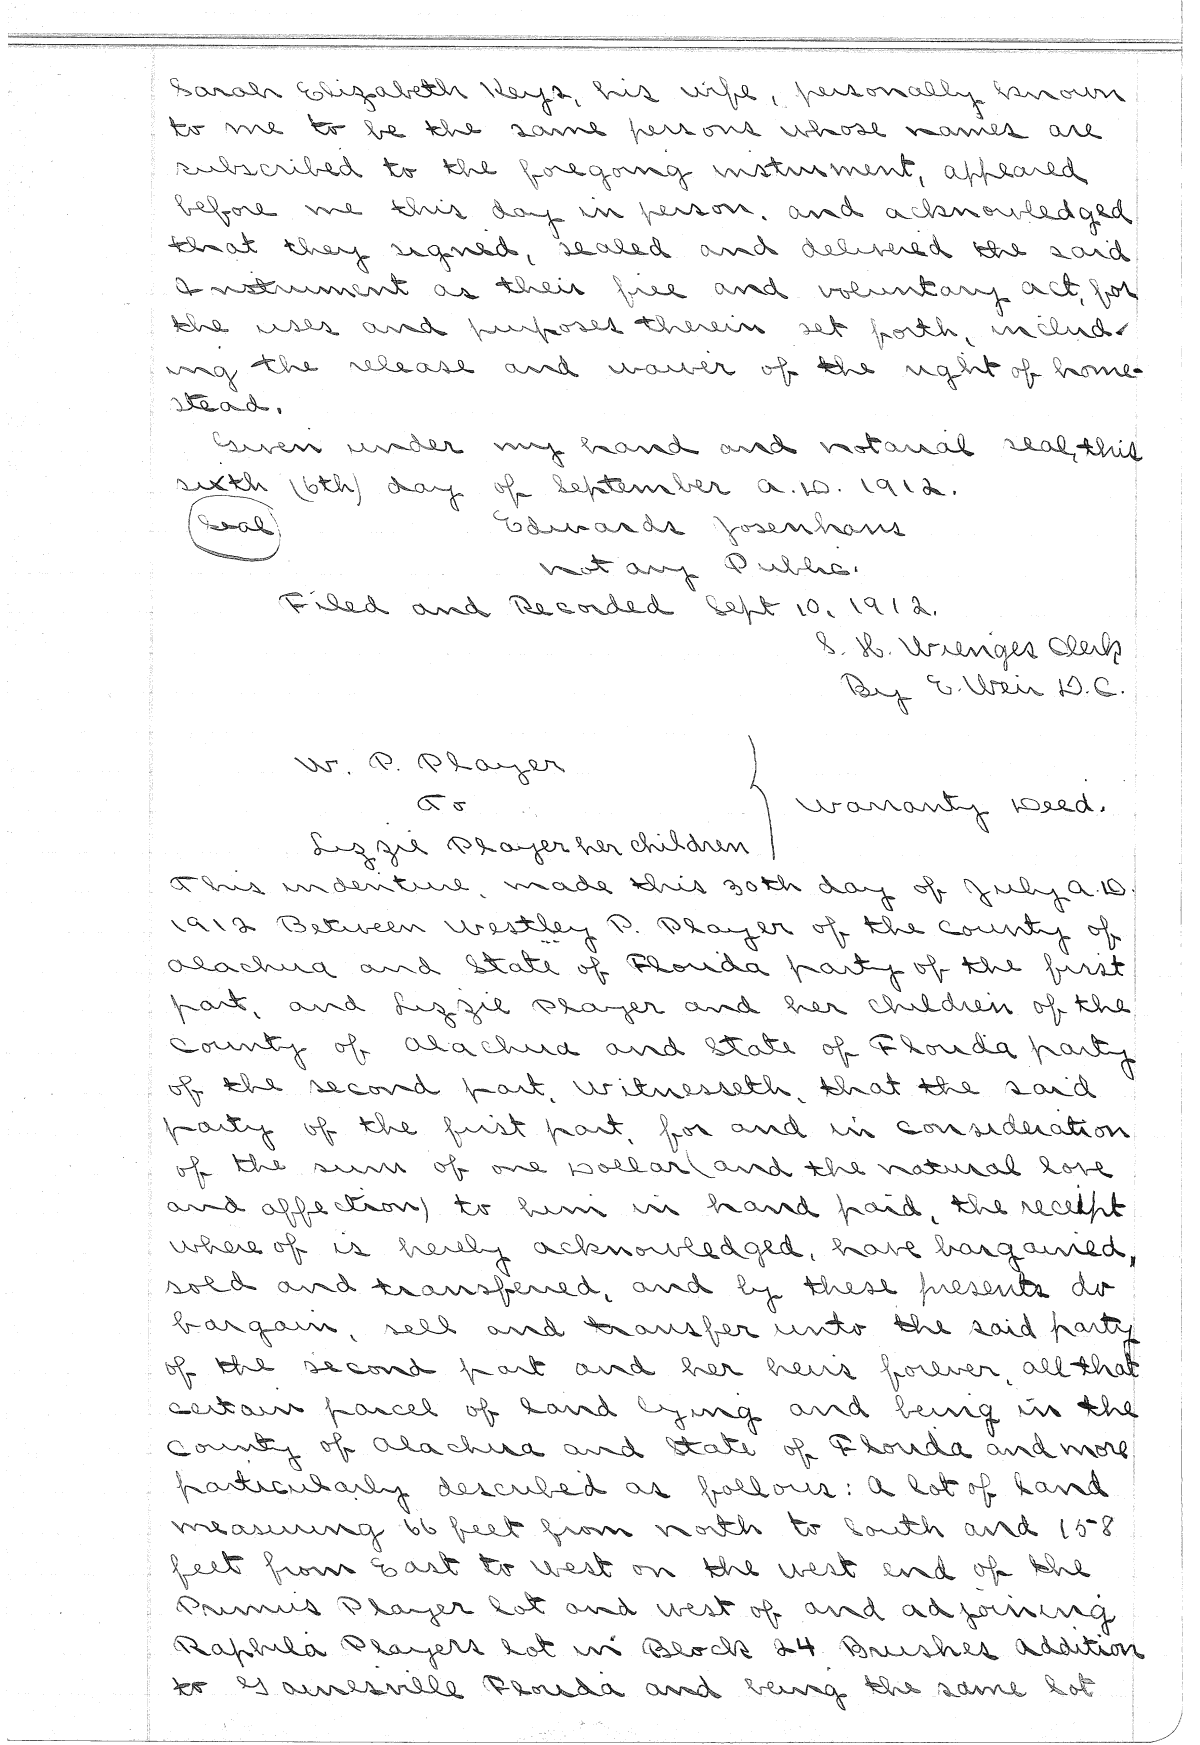 Sarah Elizabeth Keys, his wife, personally known
to me to be the same persons whose names are
subscribed to the foregoing instrument, appeared
before me this day in person, and acknowledged
that they signed, sealed and delivered the said
Instrument as their free and voluntary act, for
the uses and purposes therein set forth, includ-
ing the release and waiver of the right of home-
stead.
Given under my hand and notarial seal, this
sixth (6th) day of September A.D. 1912.
(Seal) Edwards Josenhans
Notary Public.
Filed and Recorded Sept 10, 1912.
S. H. Wienges Clerk
By E. Weir D.C.
W. P. Player
To
Lizzie Player her children
} Warranty Deed.
This indenture, made this 30th day of July A.D.
1912 Between Westley P. Player of the County of
Alachua and State of Florida party of the first
part, and Lizzie Player and her children of the
County of Alachua and State of Florida party
of the second part, Witnesseth, that the said
party of the first part, for and in consideration
of the sum of one Dollar (and the natural love
and affection) to him in hand paid, the receipt
where of is hereby acknowledged, have bargained,
sold and transfered, and by these presents do
bargain, sell and transfer unto the said party
of the second part and her heirs forever, all that
certain parcel of land lying and being in the
County of Alachua and State of Florida and more
particularly described as follows: A lot of land
measuring 66 feet from north to South and 158
feet from East to West on the west end of the
Primus Player lot and west of and adjoining
Raphila Players lot in Block 24 Brushes Addition
to Gainesville Florida and being the same lot